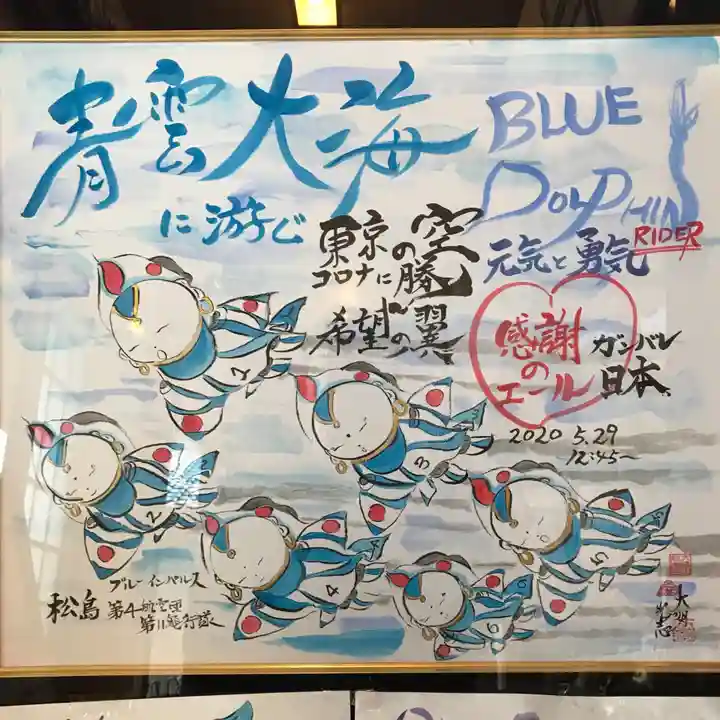 青雲大海
に游ぶ
BLUE
DOLPHIN
RIDER
東京の空
コロナに勝〜
希望の翼
元気と勇気
感謝
の
エール
ガンバレ
日本
2020 5.29
12:45〜
2
3
5
6
ブルーインパルス
松島 第4航空団
第11飛行隊